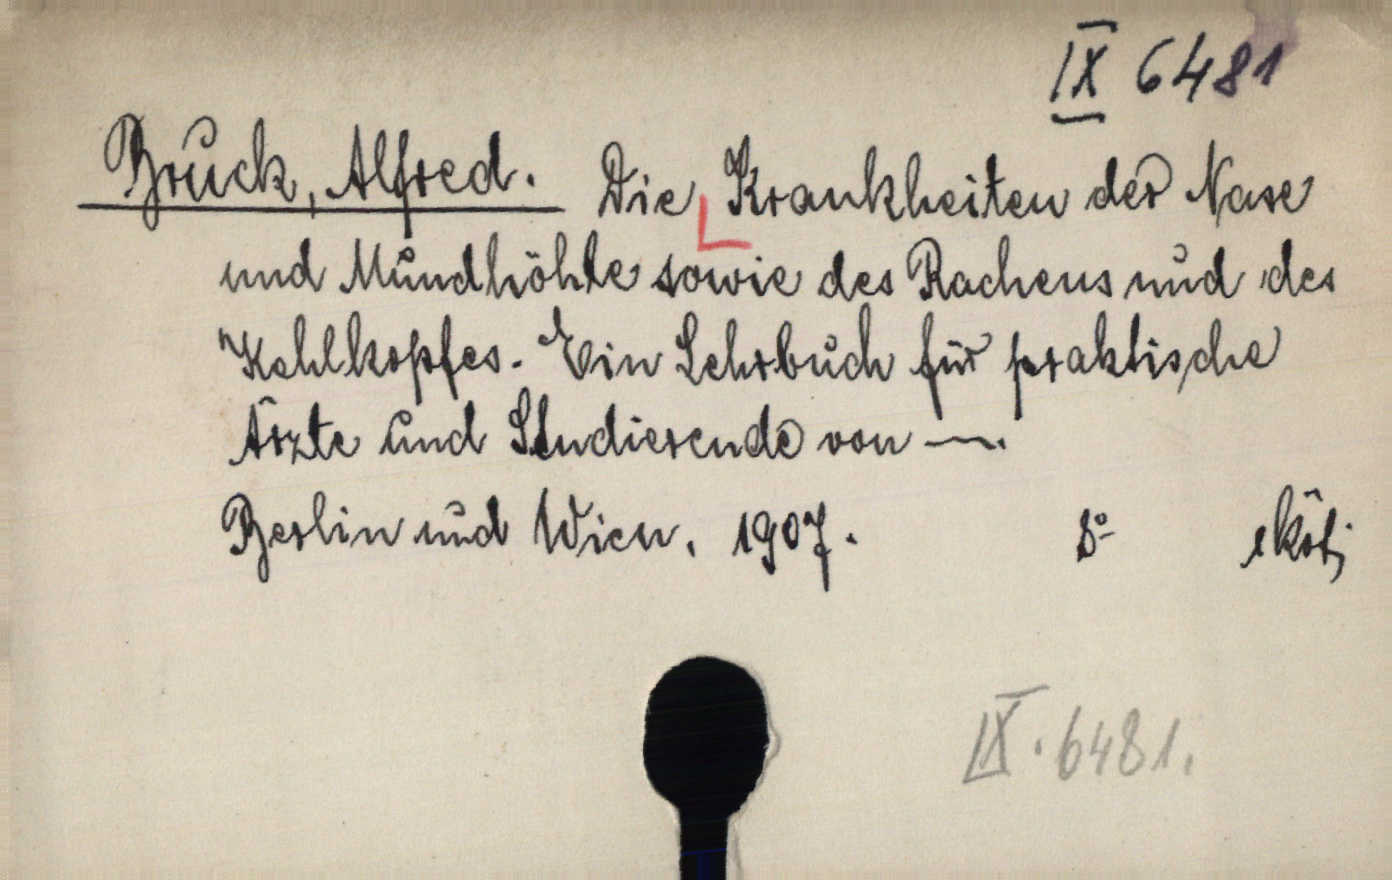 IX 6481
Bruck, Alfred. Die Krankheiten der Nase
und Mundhöhle sowie des Rachens und des
Kehlkopfes. Ein Lehrbuch für praktische
Ärzte und Studierende von —.
Berlin und Wien. 1907. 8°
IX. 6481.